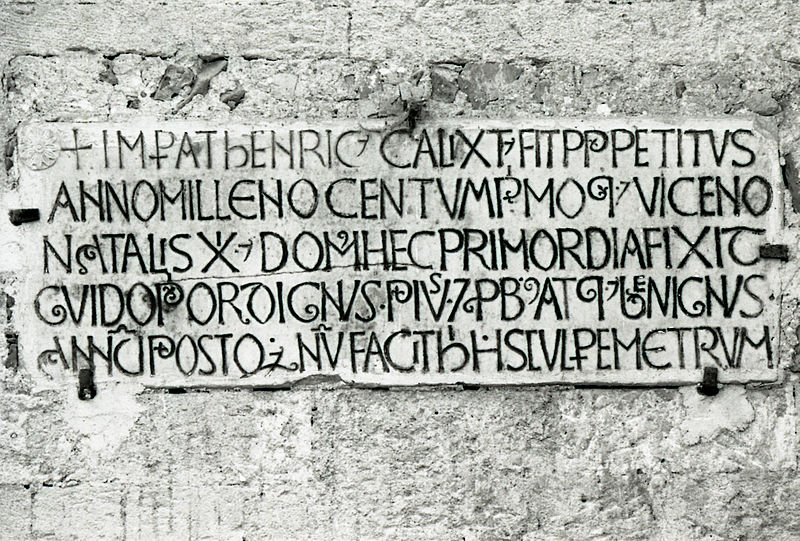 + IMPAT HENRIC⁊ CALIXT⁊ FIT PP PETITVS
ANNO MILLENO CENTVM PMO Q⁊ VICENO
NATALIS XI⁊ DOM HEC PRIMORDIA FIXIT
GVIDO POR DIGNVS PIVS ⁊ PB AT Q⁊ BENIGNVS
POSTO NV FACIT H SCVLPE METRVM